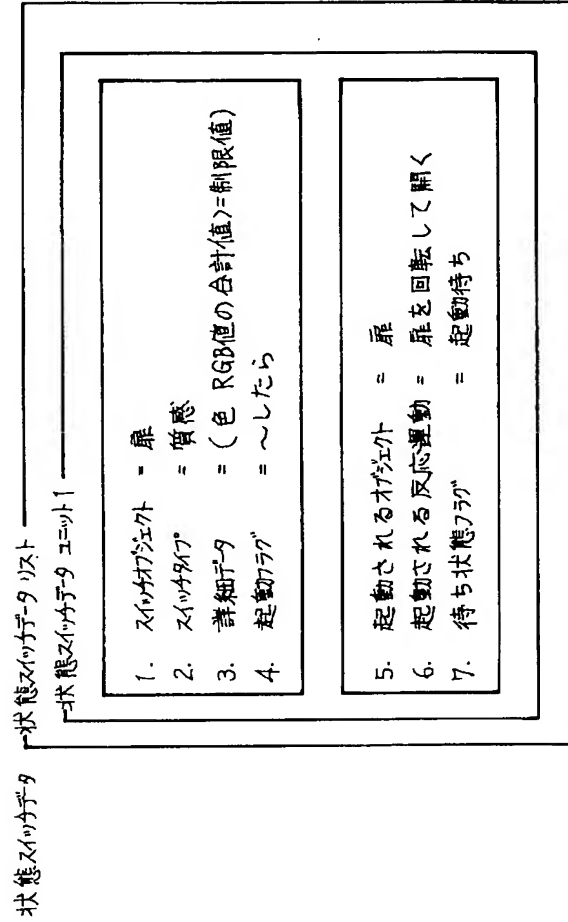 状態スイッチデータ
状態スイッチデータ リスト
状態スイッチデータ ユニット1
1. スイッチオブジェクト = 扉
2. スイッチタイプ = 質感
3. 詳細データ = (色 RGB値の合計値)=制限値)
4. 起動フラグ = 〜したら
5. 起動されるオブジェクト = 扉
6. 起動される反応運動 = 扉を回転して開く
7. 待ち状態フラグ = 起動待ち